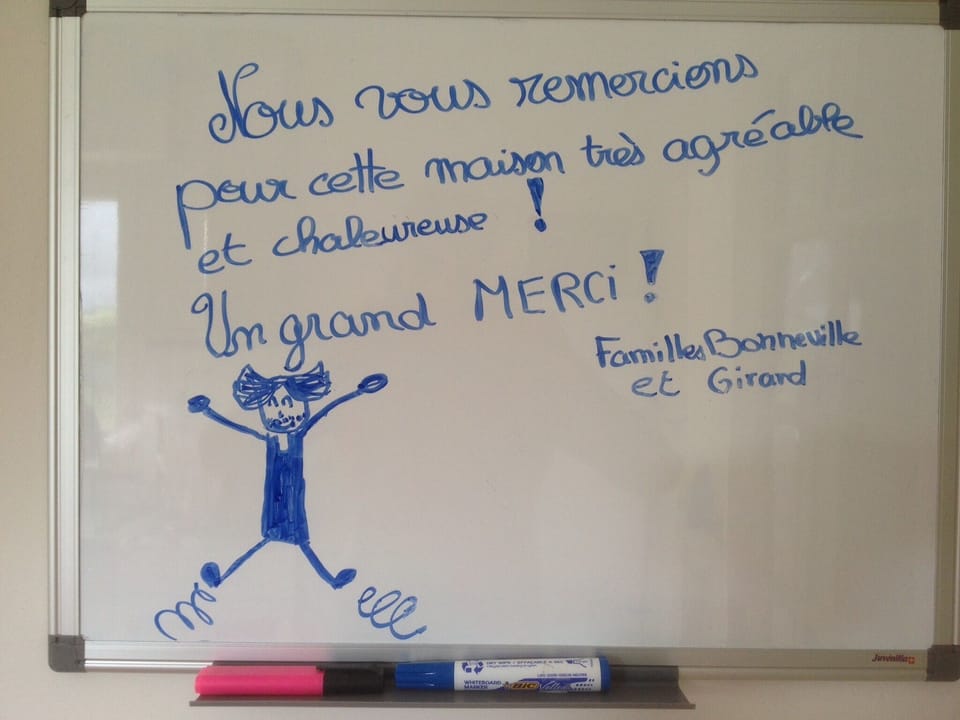 Nous vous remercions
pour cette maison très agréable
et chaleureuse !
Un grand MERCi !
Familles Bonneville
et Girard
Juvénilia
DRY WIPE / EFFAÇABLE A SEC
WHITEBOARD
MARKER
BIC
Velleda